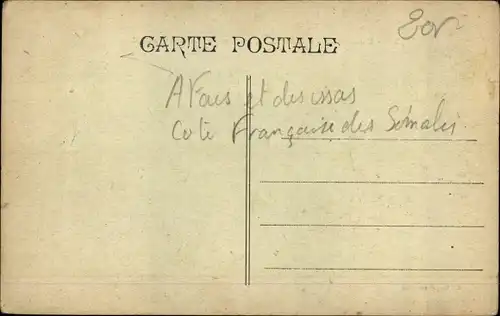 CARTE POSTALE
Afars et des issas
Cote Française des Somalis